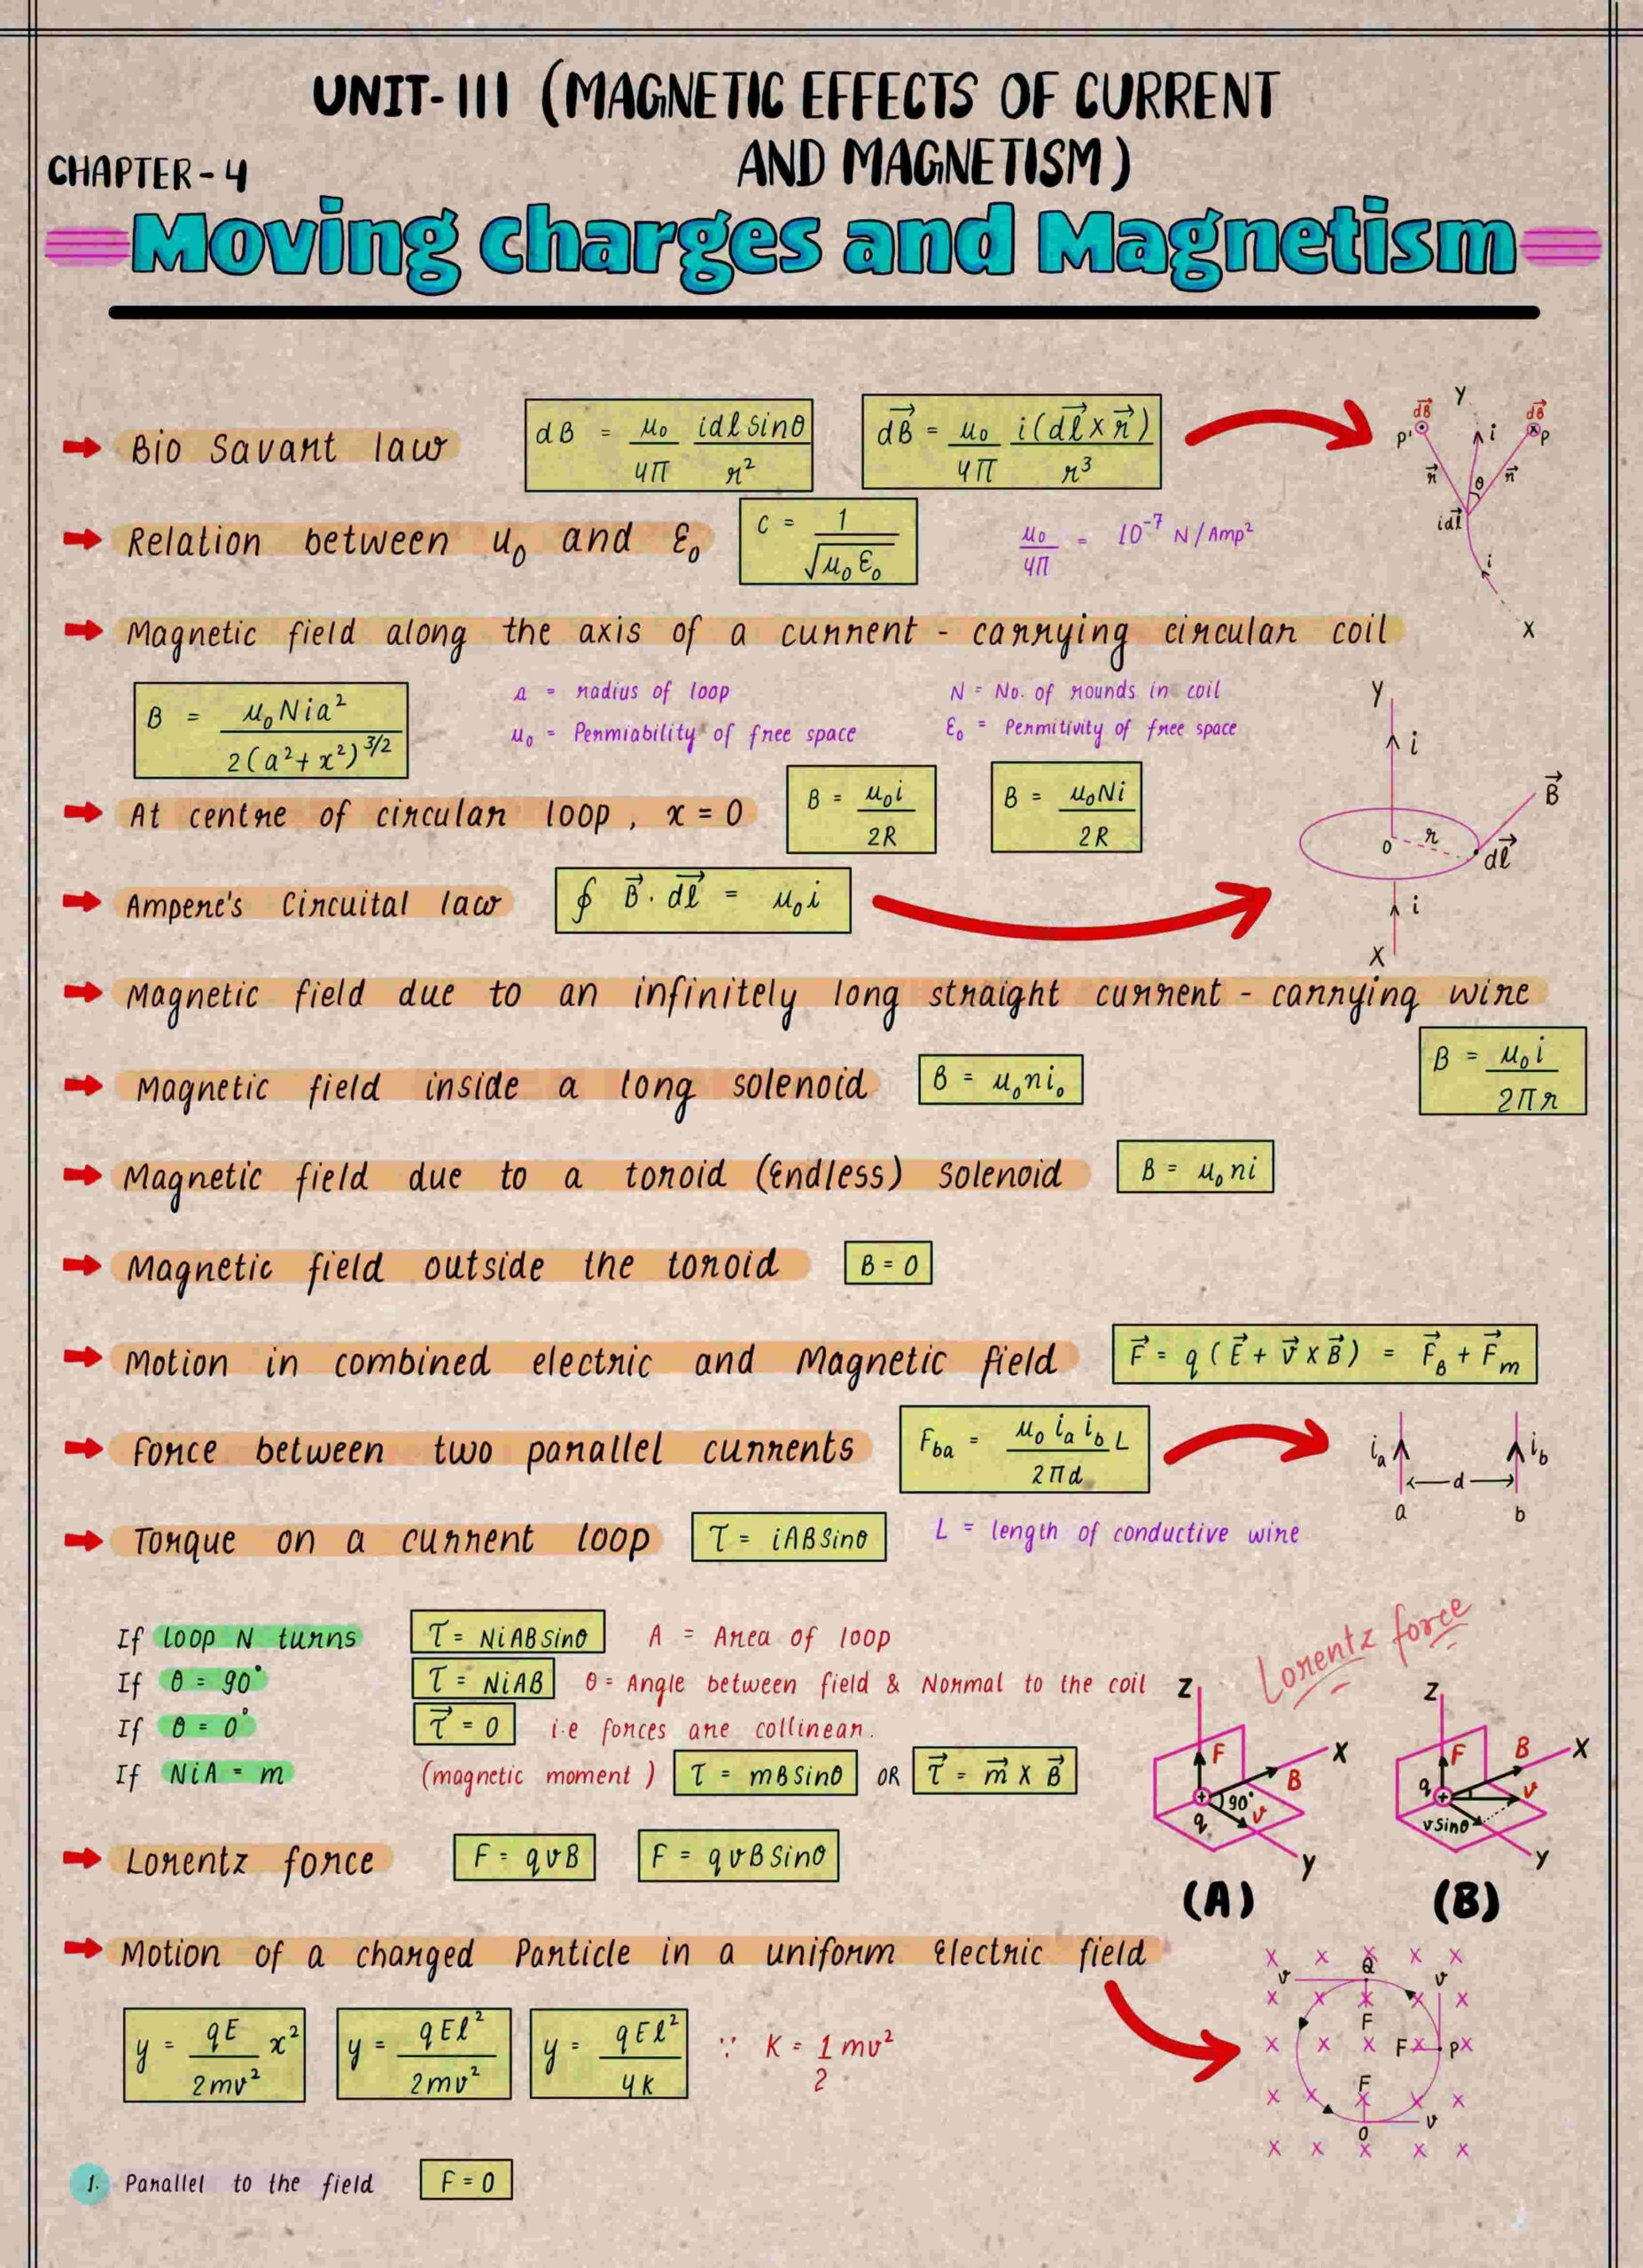 UNIT-III (MAGNETIC EFFECTS OF CURRENT
AND MAGNETISM)
CHAPTER-4
Moving charges and Magnetism
Bio Savant law dB = μ₀/4π idl sinθ/r² dB⃗ = μ₀/4π i(dl⃗ × r⃗)/r³
Y
dB⃗ dB⃗
P' P
i
r⃗ θ r⃗
idl⃗
i
X
Relation between u₀ and ε₀ C = 1/√μ₀ε₀ μ₀/4π = 10⁻⁷ N/Amp²
Magnetic field along the axis of a current - carrying circular coil
B = μ₀Nia²/2(a²+x²)^3/2
a = radius of loop N = No. of rounds in coil
μ₀ = Permiability of free space ε₀ = Permitivity of free space
At centre of circular loop, x = 0 B = μ₀i/2R B = μ₀Ni/2R
Y
i
B⃗
O r dl⃗
i
X
Ampere's Circuital law ∮ B⃗ . dl⃗ = μ₀i
Magnetic field due to an infinitely long straight current - carrying wire
B = μ₀i/2πr
Magnetic field inside a long solenoid B = μ₀ni₀
Magnetic field due to a toroid (Endless) Solenoid B = μ₀ni
Magnetic field outside the toroid B = 0
Motion in combined electric and Magnetic field F⃗ = q(E⃗ + v⃗ × B⃗) = F⃗ᵦ + F⃗m
Force between two parallel currents Fba = μ₀ iₐ i_b L/2πd
iₐ i_b
d
a b
Torque on a current loop τ = iABSinθ L = length of conductive wire
If loop N turns τ = NiABsinθ A = Area of loop
If θ = 90° τ = NiAB θ = Angle between field & Normal to the coil
If θ = 0° τ⃗ = 0 i.e forces are collinear.
If NiA = m (magnetic moment) τ = mBSinθ OR τ⃗ = m⃗ × B⃗
Lorentz force
Z Z
F X F B X
B q v
90° v vsinθ
q
Y Y
(A) (B)
Lorentz force F = qvB F = qvBSinθ
Motion of a charged Particle in a uniform Electric field
y = qE/2mv² x² y = qEl²/2mv² y = qEl²/4K ∵ K = 1/2 mv²
x x x x x
v Q v
x x x x x
F
x x x F x P x
F
x x x x x
O v
x x x x x
1. Parallel to the field F = 0